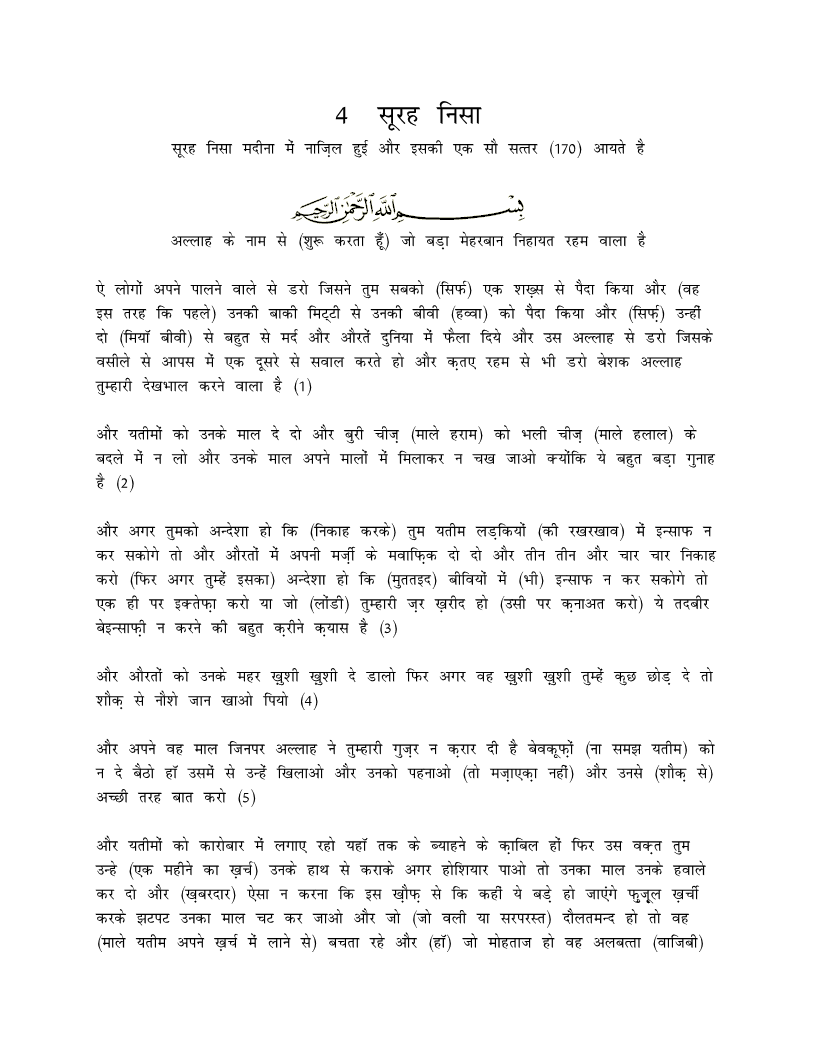 4 सूरह निसा
सूरह निसा मदीना में नाज़िल हुई और इसकी एक सौ सत्तर (170) आयते है
بِسْمِ اللهِ الرَّحْمٰنِ الرَّحِيْمِ
अल्लाह के नाम से (शुरू करता हूँ) जो बड़ा मेहरबान निहायत रहम वाला है
ऐ लोगों अपने पालने वाले से डरो जिसने तुम सबको (सिर्फ) एक शख़्स से पैदा किया और (वह
इस तरह कि पहले) उनकी बाकी मिट्टी से उनकी बीवी (हव्वा) को पैदा किया और (सिर्फ़) उन्हीं
दो (मियाँ बीवी) से बहुत से मर्द और औरतें दुनिया में फैला दिये और उस अल्लाह से डरो जिसके
वसीले से आपस में एक दूसरे से सवाल करते हो और क़तए रहम से भी डरो बेशक अल्लाह
तुम्हारी देखभाल करने वाला है (1)
और यतीमों को उनके माल दे दो और बुरी चीज़ (माले हराम) को भली चीज़ (माले हलाल) के
बदले में न लो और उनके माल अपने मालों में मिलाकर न चख जाओ क्योंकि ये बहुत बड़ा गुनाह
है (2)
और अगर तुमको अन्देशा हो कि (निकाह करके) तुम यतीम लड़कियों (की रखरखाव) में इन्साफ न
कर सकोगे तो और औरतों में अपनी मर्ज़ी के मवाफ़िक दो दो और तीन तीन और चार चार निकाह
करो (फिर अगर तुम्हें इसका) अन्देशा हो कि (मुततइद) बीवियों में (भी) इन्साफ न कर सकोगे तो
एक ही पर इक्तेफ़ा करो या जो (लोंडी) तुम्हारी ज़र ख़रीद हो (उसी पर क़नाअत करो) ये तदबीर
बेइन्साफ़ी न करने की बहुत क़रीने क़यास है (3)
और औरतों को उनके महर ख़ुशी ख़ुशी दे डालो फिर अगर वह ख़ुशी ख़ुशी तुम्हें कुछ छोड़ दे तो
शौक़ से नौशे जान खाओ पियो (4)
और अपने वह माल जिनपर अल्लाह ने तुम्हारी गुज़र न क़रार दी है बेवकूफ़ों (ना समझ यतीम) को
न दे बैठो हाँ उसमें से उन्हें खिलाओ और उनको पहनाओ (तो मज़ाएक़ा नहीं) और उनसे (शौक़ से)
अच्छी तरह बात करो (5)
और यतीमों को कारोबार में लगाए रहो यहाँ तक के ब्याहने के क़ाबिल हों फिर उस वक़्त तुम
उन्हे (एक महीने का ख़र्च) उनके हाथ से कराके अगर होशियार पाओ तो उनका माल उनके हवाले
कर दो और (ख़बरदार) ऐसा न करना कि इस ख़ौफ़ से कि कहीं ये बड़े हो जाएंगे फुज़ूल ख़र्ची
करके झटपट उनका माल चट कर जाओ और जो (जो वली या सरपरस्त) दौलतमन्द हो तो वह
(माले यतीम अपने ख़र्च में लाने से) बचता रहे और (हाँ) जो मोहताज हो वह अलबत्ता (वाजिबी)